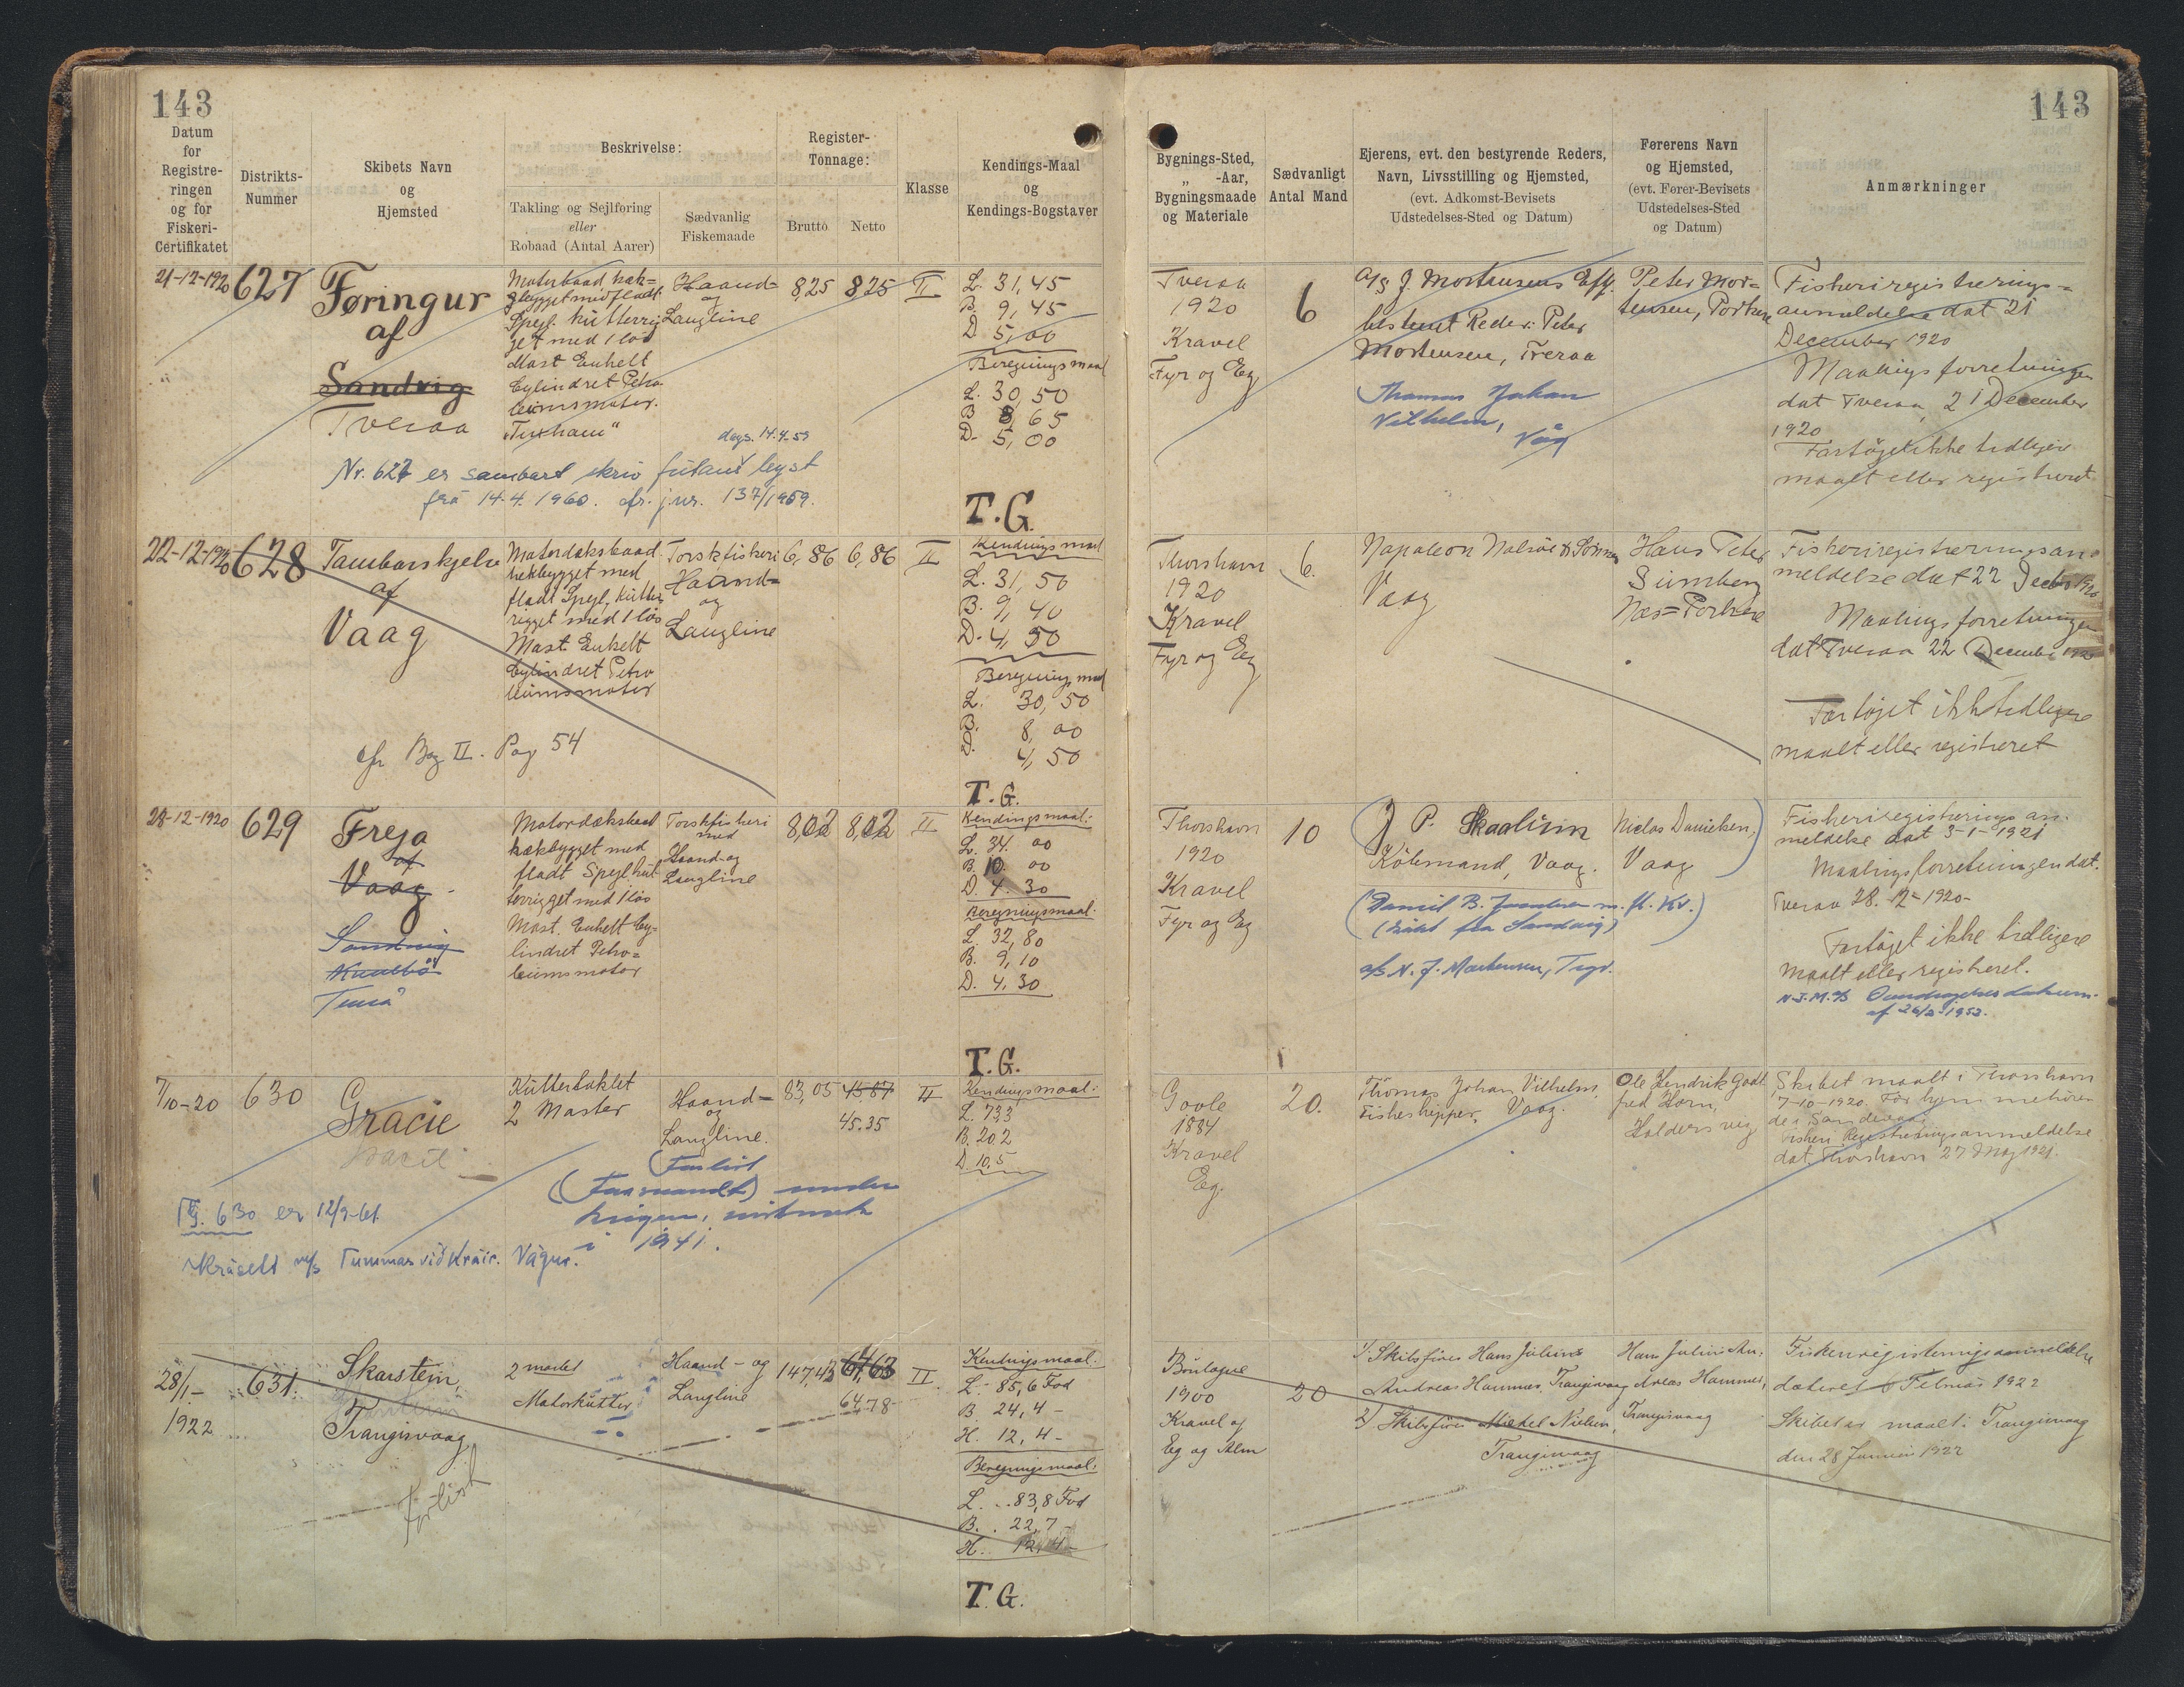 143
Datum
for
Registre-
ringen
og for
Fiskeri-
Certifikatet
Distrikts-
Nummer
Skibets Navn
og
Hjemsted
Beskrivelse:
Takling og Sejlføring
eller
Robaad (Antal Aarer)
Sædvanlig
Fiskemaade
Register-
Tonnage:
Brutto
Netto
Klasse
Kendings-Maal
og
Kendings-Bogstaver
21-12-1920
627
Føringur
af
Sandvig
Tveraa
Motorbaad hæk=
bygget med fladt
Spejl. Kutterrig
get med 1 løs
Mast Enkelt
Cylindret Petro
leumsmotor.
"Tuxham"
Haand-
og
Langline
8,25
8,25
II
L. 31,45
B. 9,45
D. 5,00
Beregningsmaal
L. 30,50
B 8,65
D. 5,00
dags. 14.4.59
Nr. 627 er sambært skriv lýst
frá 14.4.1960. cfr. j.nr. 137/1959.
T.G.
22-12-1920
628
Tambarskjelve
af
Vaag
Motordæksbaad
hækbygget med
fladt Spejl, Kutter
rigget med 1 løs
Mast Enkelt
Cylindret Petro
leumsmotor
Torskfiskeri
Haand=
og
Langline
6,86
6,86
II
Kendingsmaal
L. 31,50
B. 9,40
D. 4,50
Beregningsmaal
L. 30,50
B. 8,00
D. 4,50
cfr Bog II. Pag 54
T.G.
28-12-1920
629
Freja
af
Vaag
Sandvig
Tverá
Motordæksbaad
hækbygget med
fladt Spejl, kut
terrigget med 1 løs
Mast. Enkelt Cy=
lindret Petro=
leumsmotor
Torskfiskeri
med
Haand- og
Langline
8,02
8,02
II
Kendingsmaal:
L. 34. 00
B. 10. 00
D. 4. 30
Beregningsmaal:
L. 32,80
B. 9,10
D. 4,30
T.G.
7/10-20
630
Gracie
Gracie
Kutterbaklet
2 Master
Haand-
og
Langline.
83,05
45,87
45.35
II
Kendingsmaal:
L. 733
B. 202
D. 10,5
(Forlist
(Faamandt) under
krigen,
i 1941.
TG. 630 er 12/9-61
m/s Tummas við Kráir. Vágur.
28/1-
1922
631.
Skarstein,
Trangisvaag
Forlist
2 mastet
Motorkutter
Haand- og
Langline
147,43
64,63
64.78
II
Kendingsmaal:
L. 85,6 Fod
B. 24,4 -
H. 12,4 -
Beregningsmaal:
L. 83,8 Fod
B. 22,7 -
H. 12,4 -
T.G.
143
Bygnings-Sted,
" -Aar,
Bygningsmaade
og Materiale
Sædvanligt
Antal Mand
Ejerens, evt. den bestyrende Reders,
Navn, Livsstilling og Hjemsted,
(evt. Adkomst-Bevisets
Udstedelses-Sted og Datum)
Førerens Navn
og Hjemsted,
(evt. Fører-Bevisets
Udstedelses-Sted
og Datum)
Anmærkninger
Tveraa
1920
Kravel
Fyr og Eg
6
A/S J. Mortensens Eftf.
bestemt Reder: Peter
Mortensen, Tveraa
Thomas Johan
Vilhelm,
Våg
Peter Mor=
tensen, Porkere
Fiskeriregistrerings=
anmeldelse dat 21
December 1920
Maalingsforretningen
dat Tveraa 21 December
1920
Fartøjet ikke tidligere
maalt eller registreret
Thorshavn
1920
Kravel
Fyr og Eg
6.
Napoleon Nolsøe & Sønner
Vaag
Hans Peter
Sumberg
Næs=Porkere
Fiskeriregistreringsan=
meldelse dat 22 Decbr 1920
Maalingsforretningen
dat Tveraa 22 December 1920
Fartøjet ikke tidligere
maalt eller registreret
Thorshavn
1920
Kravel
Fyr og Eg
10
J P. Skaalum
Købmand, Vaag.
(Daniel B. Jacobsen m. fl. Kv.)
(Købt fra Sandvig)
a/s N. J. Mortensen, Tvør.
Niclas Danielsen,
Vaag
Fiskeriregistrerings an-
meldelse dat 3-1-1921
Maalingsforretningen dat.
Tveraa 28. 12-1920-
Fartøjet ikke tidligere
maalt eller registreret.
N.J.M. A/S
1953.
Goole
1884
Kravel
Eg.
20.
Thomas Johan Vilhelm,
Fiskeskipper, Vaag.
Ole Hendrik Godt
fred Horn,
Holdersvig
Skibet maalt i Thorshavn
7-10-1920. Før hjem mehøren
de i Sandevaag
Fiskeri Registreringsanmeldelse
dat. Thorshavn 27 Maj 1921.
Boulogne
1900
Kravel af
Eg og Alm
20
1/ Skibsfører Hans Julius
Andreas Hammer, Trangisvaag
2/ Skibsfører Mikkel Nielsen,
Trangisvaag
Hans Julius An-
dreas Hammer,
Trangisvaag
Fiskeriregistreringsanmeldelse
dateret 6 Februar 1922
Skibet er maalt i Trangisvaag
den 28 Januar 1922